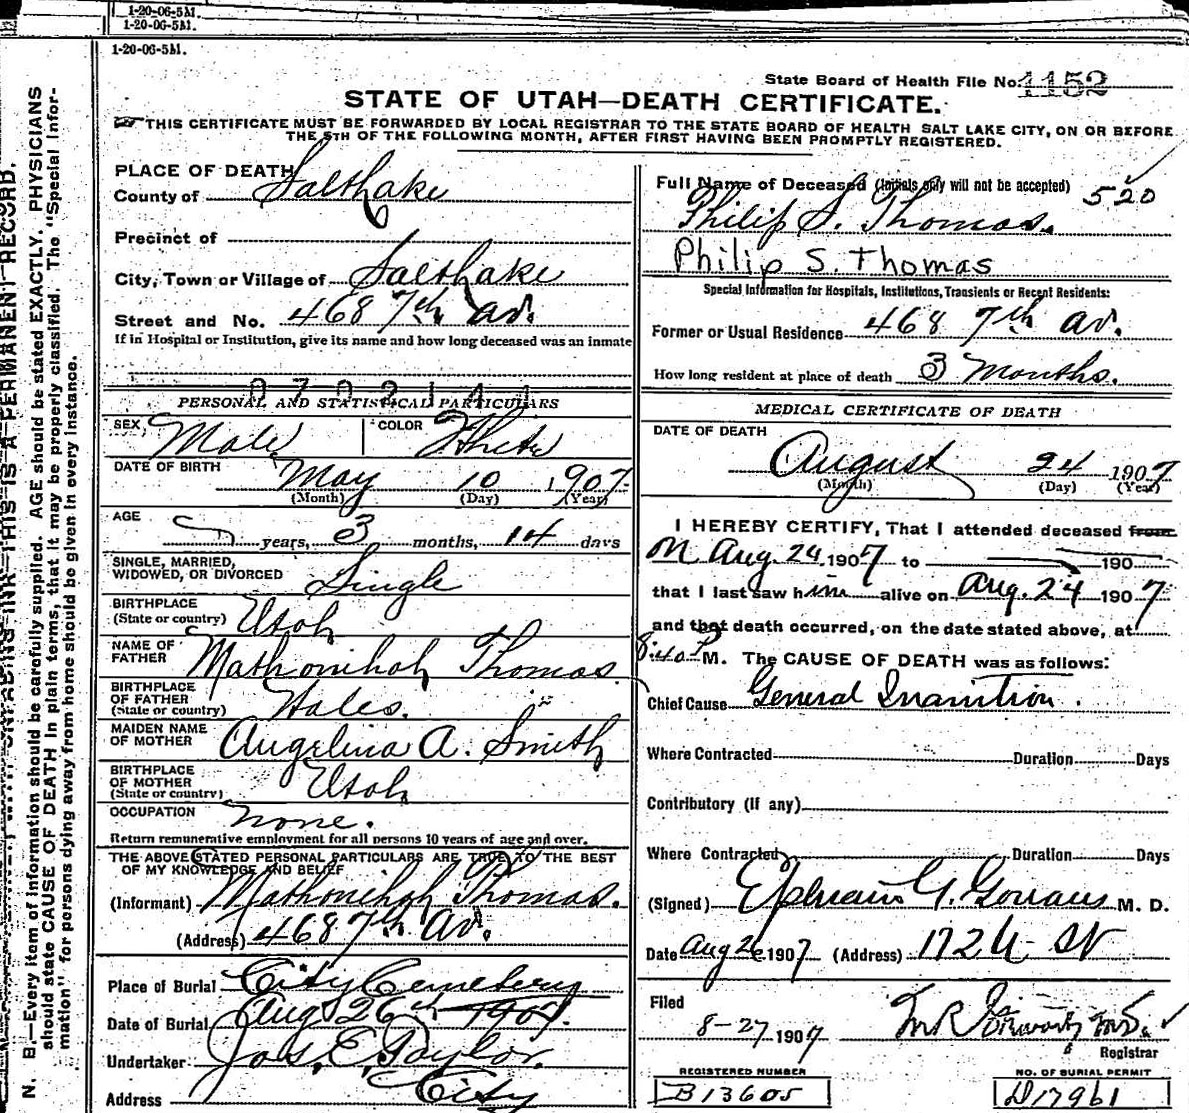 1-20-06-5M
1-20-06-5M.
1-20-06-5M.
State Board of Health File No. 1152
STATE OF UTAH—DEATH CERTIFICATE.
THIS CERTIFICATE MUST BE FORWARDED BY LOCAL REGISTRAR TO THE STATE BOARD OF HEALTH SALT LAKE CITY, ON OR BEFORE
THE 5TH OF THE FOLLOWING MONTH, AFTER FIRST HAVING BEEN PROMPTLY REGISTERED.
N. B.—Every item of information should be carefully supplied. AGE should be stated EXACTLY. PHYSICIANS
should state CAUSE OF DEATH in plain terms, that it may be properly classified. The "Special Infor-
mation" for persons dying away from home should be given in every instance.
UNFADING INK—THIS IS A PERMANENT RECORD.
PLACE OF DEATH
County of Salt Lake
Precinct of
City, Town or Village of Salt Lake
Street and No. 468 7th Av.
If in Hospital or Institution, give its name and how long deceased was an inmate
PERSONAL AND STATISTICAL PARTICULARS
SEX Male COLOR White
DATE OF BIRTH May 10, 1907
(Month) (Day) (Year)
AGE years, 3 months, 14 days
SINGLE, MARRIED,
WIDOWED, OR DIVORCED Single
BIRTHPLACE
(State or country) Utah
NAME OF
FATHER Mathonihah Thomas
BIRTHPLACE
OF FATHER
(State or country) Wales.
MAIDEN NAME
OF MOTHER Angelina A. Smith
BIRTHPLACE
OF MOTHER
(State or country) Utah
OCCUPATION none.
Return remunerative employment for all persons 10 years of age and over.
THE ABOVE STATED PERSONAL PARTICULARS ARE TRUE TO THE BEST
OF MY KNOWLEDGE AND BELIEF
(Informant) Mathonihah Thomas.
(Address) 468 7th Av.
Place of Burial City Cemetery
Date of Burial Aug 26th 1907.
Undertaker Jos. E. Taylor.
Address City
Full Name of Deceased (Initials only will not be accepted) 520
Philip S. Thomas.
Philip S. Thomas
Special Information for Hospitals, Institutions, Transients or Recent Residents:
Former or Usual Residence 468 7th Av.
How long resident at place of death 3 Months.
MEDICAL CERTIFICATE OF DEATH
DATE OF DEATH
August 24 1907
(Month) (Day) (Year)
I HEREBY CERTIFY, That I attended deceased from
on Aug. 24 1907 to 190
that I last saw him alive on Aug. 24 1907
and that death occurred, on the date stated above, at
8:40 P M. The CAUSE OF DEATH was as follows:
Chief Cause General Inanition.
Where Contracted Duration Days
Contributory (if any)
Where Contracted Duration Days
(Signed) Ephraim G. Gowans M. D.
Date Aug 26 1907 (Address) 172 U St
Filed
8-27 1907
Registrar
REGISTERED NUMBER
B13605
NO. OF BURIAL PERMIT
D17961